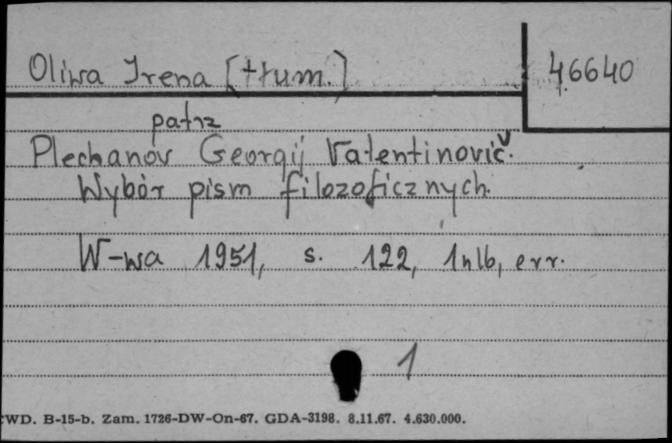 Oliwa Irena [tłum.] 46640
patrz
Plechanov Georgij Valentinovič.
Wybór pism filozoficznych.
W-wa 1951, s. 122, 1nlb, err.
1
CWD. B-15-b. Zam. 1726-DW-On-67. GDA-3198. 8.11.67. 4.630.000.